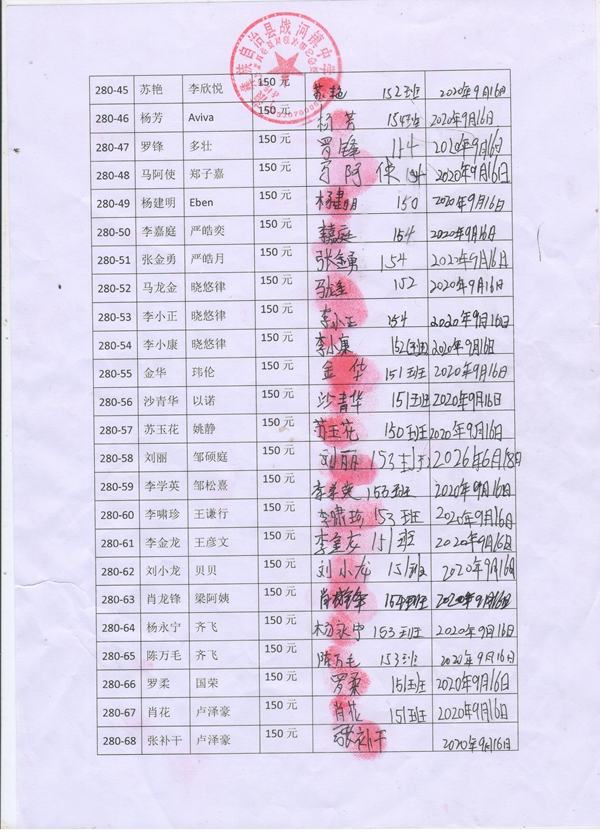 族自治县战河镇中学
280-45 苏艳 李欣悦 150元 苏艳 152班 2020年9月16日
280-46 杨芳 Aviva 150元 杨芳 154班 2020年9月16日
280-47 罗锋 多壮 150元 罗锋 154 2020年9月16日
280-48 马阿使 郑子嘉 150元 马阿使 154 2020年9月16日
280-49 杨建明 Eben 150元 杨建明 150 2020年9月16日
280-50 李嘉庭 严皓奕 150元 李嘉庭 154 2020年9月16日
280-51 张金勇 严皓月 150元 张金勇 154 2020年9月16日
280-52 马龙金 晓悠律 150元 马龙金 152 2020年9月16日
280-53 李小正 晓悠律 150元 李小正 154 2020年9月16日
280-54 李小康 晓悠律 150元 李小康 152(班) 2020年9月16日
280-55 金华 玮伦 150元 金华 151班 2020年9月16日
280-56 沙青华 以诺 150元 沙青华 151班 2020年9月16日
280-57 苏玉花 姚静 150元 苏玉花 150班 2020年9月16日
280-58 刘丽 邹硕庭 150元 刘丽 153班 2026年6月18日
280-59 李学英 邹松熹 150元 李学英 153班 2020年9月16日
280-60 李啸珍 王谦行 150元 李啸珍 153班 2020年9月16日
280-61 李金龙 王彦文 150元 李金龙 151班 2020年9月16日
280-62 刘小龙 贝贝 150元 刘小龙 151班 2020年9月16日
280-63 肖龙锋 梁阿姨 150元 肖龙锋 154班 2020年9月16日
280-64 杨永宁 齐飞 150元 杨永宁 153班 2020年9月16日
280-65 陈万毛 齐飞 150元 陈万毛 153班 2020年9月16日
280-66 罗柔 国荣 150元 罗柔 151班 2020年9月16日
280-67 肖花 卢泽豪 150元 肖花 151班 2020年9月16日
280-68 张补干 卢泽豪 150元 张补干 2020年9月16日